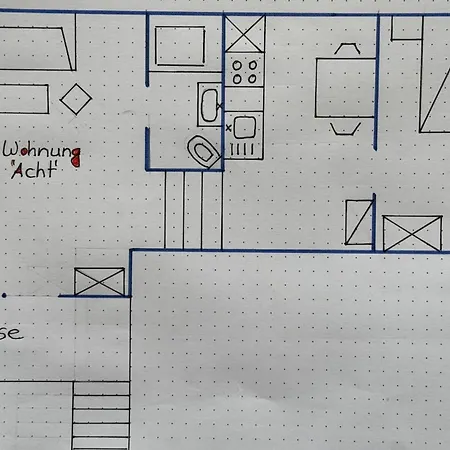 Wohnung
"Acht"
se